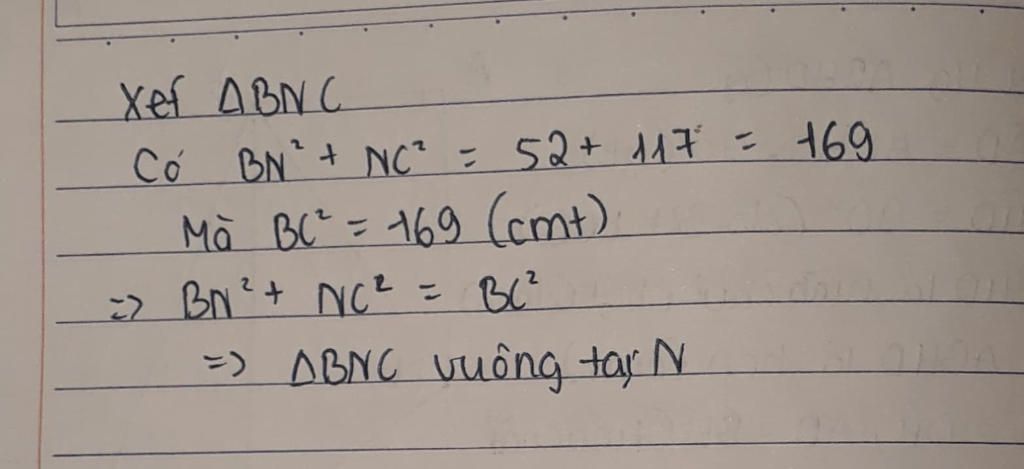 Xét ΔBNC
Có BN² + NC² = 52 + 117 = 169
Mà BC² = 169 (cmt)
=> BN² + NC² = BC²
=> ΔBNC vuông tại N